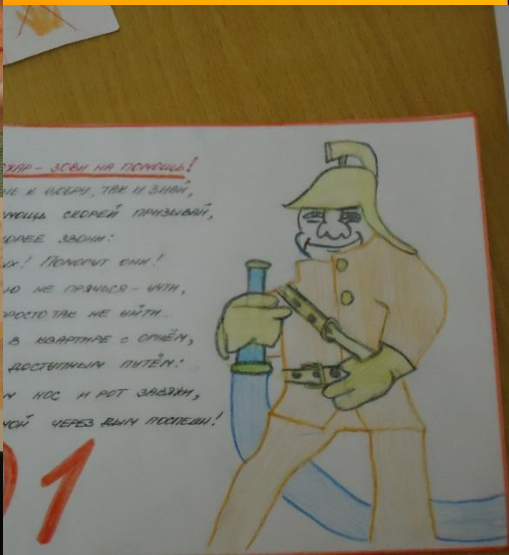 - ЗОВИ НА ПОМОЩЬ!
К ДОБРУ, ТАК И ЗНАЙ,
СКОРЕЙ ПРИЗЫВАЙ,
ЗВОНИ:
! ПОМОГУТ ОНИ!
НЕ ПРЯЧЬСЯ - УЙТИ,
ТАК НЕ УЙТИ.
В КВАРТИРЕ С ОГНЁМ,
ДОСТУПНЫМ ПУТЁМ:
НОС И РОТ ЗАВЯЖИ,
ЧЕРЕЗ ДЫМ ПОСПЕШИ!
1